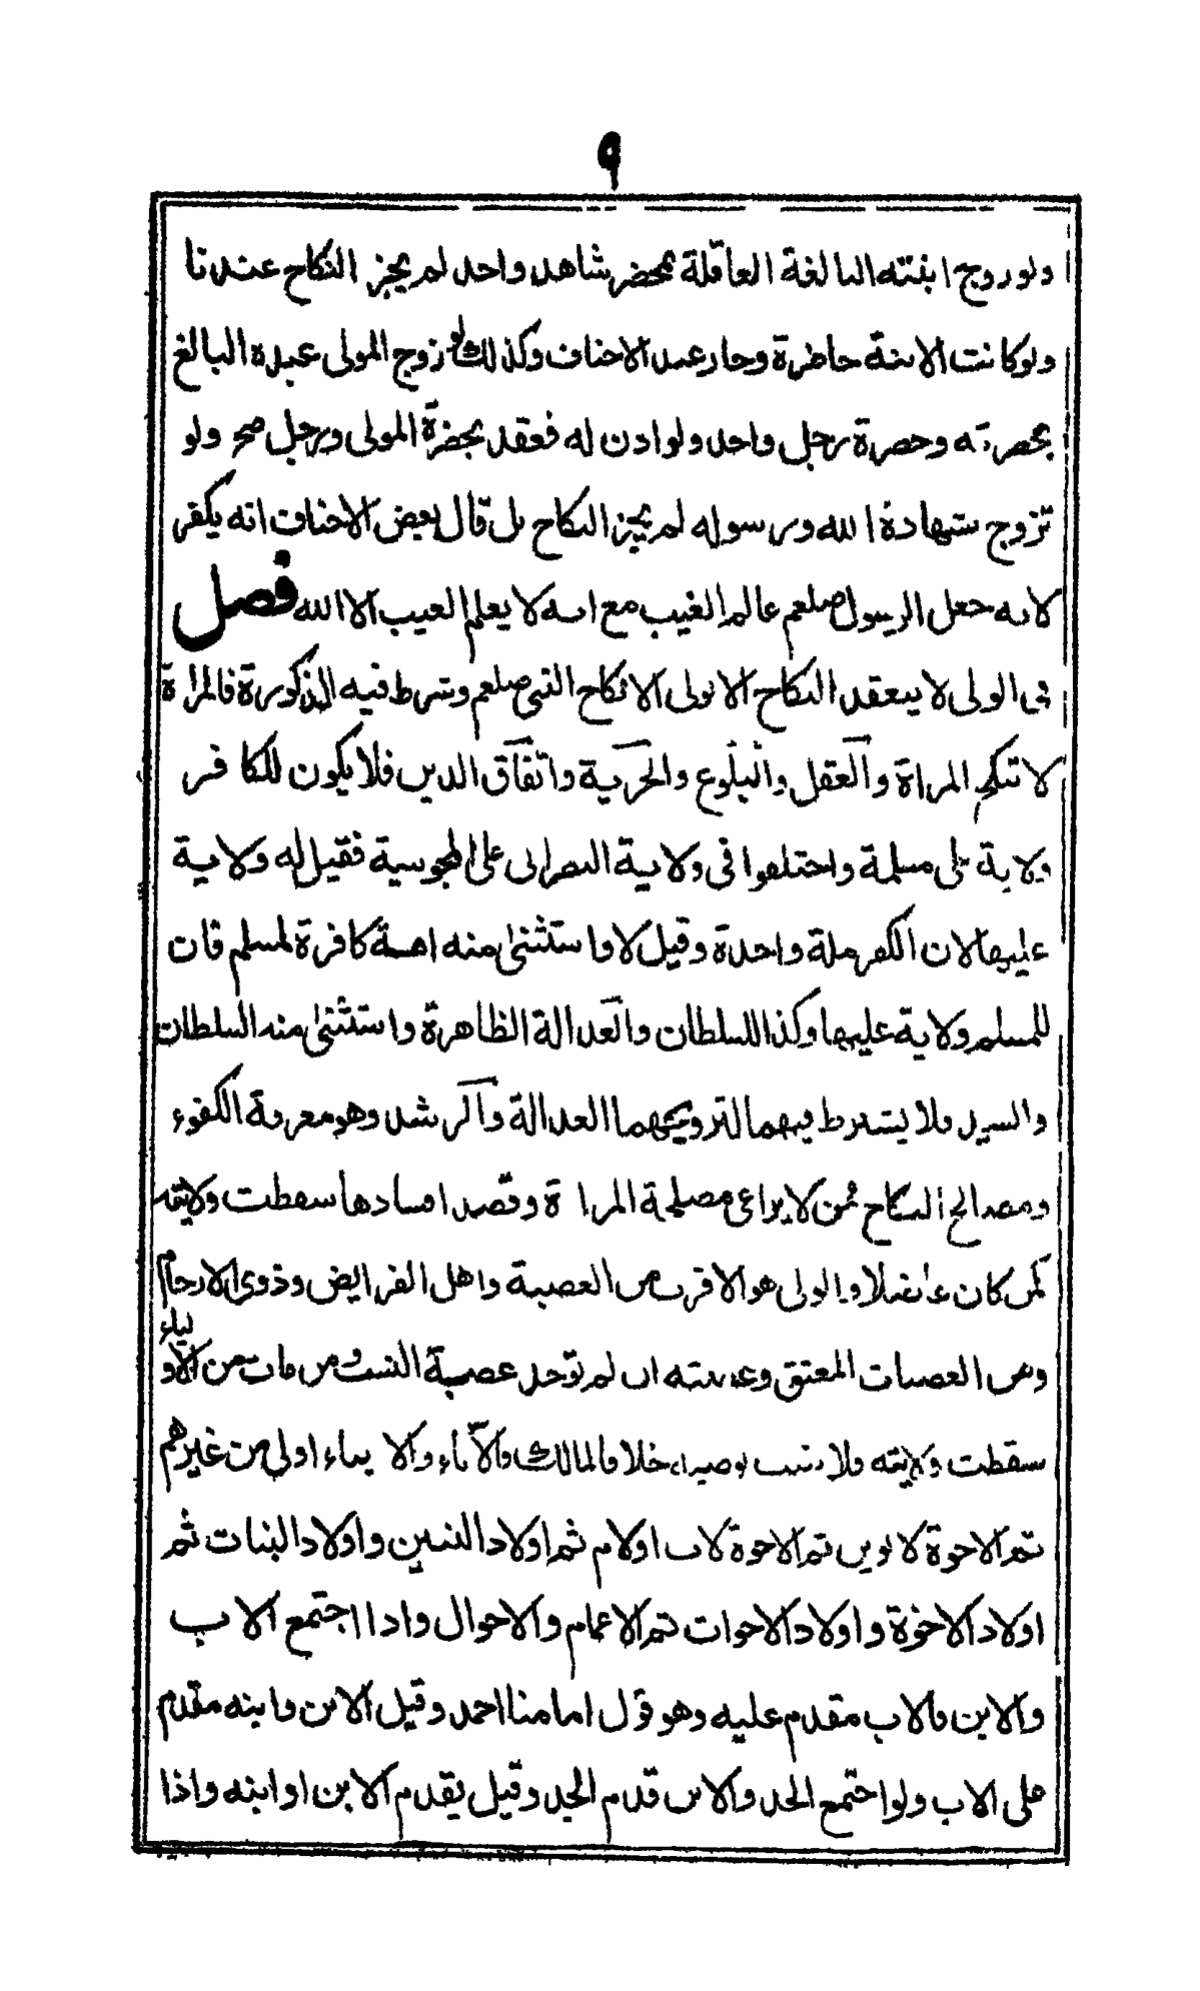 ٩
ولو زوج ابنته البالغة العاقلة بمحضر شاهد واحد لم يجز النكاح عندنا
ولو كانت الابنة حاضرة وجاز عند الاحناف وكذلك لو زوج المولى عبده البالغ
بحضرته وحضرة رجل واحد ولو اذن له فعقد بحضرة المولى ورجل صح ولو
تزوج بشهادة الله ورسوله لم يجز النكاح بل قال بعض الاحناف انه يكفر
لانه جعل الرسول صلعم عالم الغيب مع انه لا يعلم الغيب الا الله فصل
فى الولى لا ينعقد النكاح الا بولى الا نكاح النبى صلعم وشرط فيه الذكورة فالمراة
لا تنكح المراة والعقل والبلوغ والحرية واتفاق الدين فلا يكون للكافر
ولاية على مسلمة واختلفوا فى ولاية النصرانى على المجوسية فقيل له ولاية
عليها لان الكفر ملة واحدة وقيل لا واستثنى منه امة كافرة لمسلم فان
للمسلم ولاية عليها وكذا السلطان والعدالة الظاهرة واستثنى منه السلطان
والسيد فلا يشترط فيهما لتزويجهما العدالة والرشد وهو معرفة الكفوء
ومصالح النكاح فمن لا يراعى مصلحة المراة وقصد افسادها سقطت ولايته
كمن كان عاضلا والولى هو الاقرب من العصبة واهل الفرايض وذوى الارحام
ومن العصبات المعتق وعصبته ان لم توجد عصبة النسب ومن مات من الاولياء
سقطت ولايته فلا خلافا لمالك والآباء والابناء اولى من غيرهم
ثم الاخوة لابوين ثم الاخوة لاب او لام ثم اولاد البنين واولاد البنات ثم
اولاد الاخوة واولاد الاخوات ثم الاعمام والاخوال واذا اجتمع الاب
والابن فالاب مقدم عليه وهو قول امامنا احمد وقيل الابن وابنه مقدم
على الاب ولو اجتمع الجد والابن قدم الجد وقيل يقدم الابن او ابنه واذا